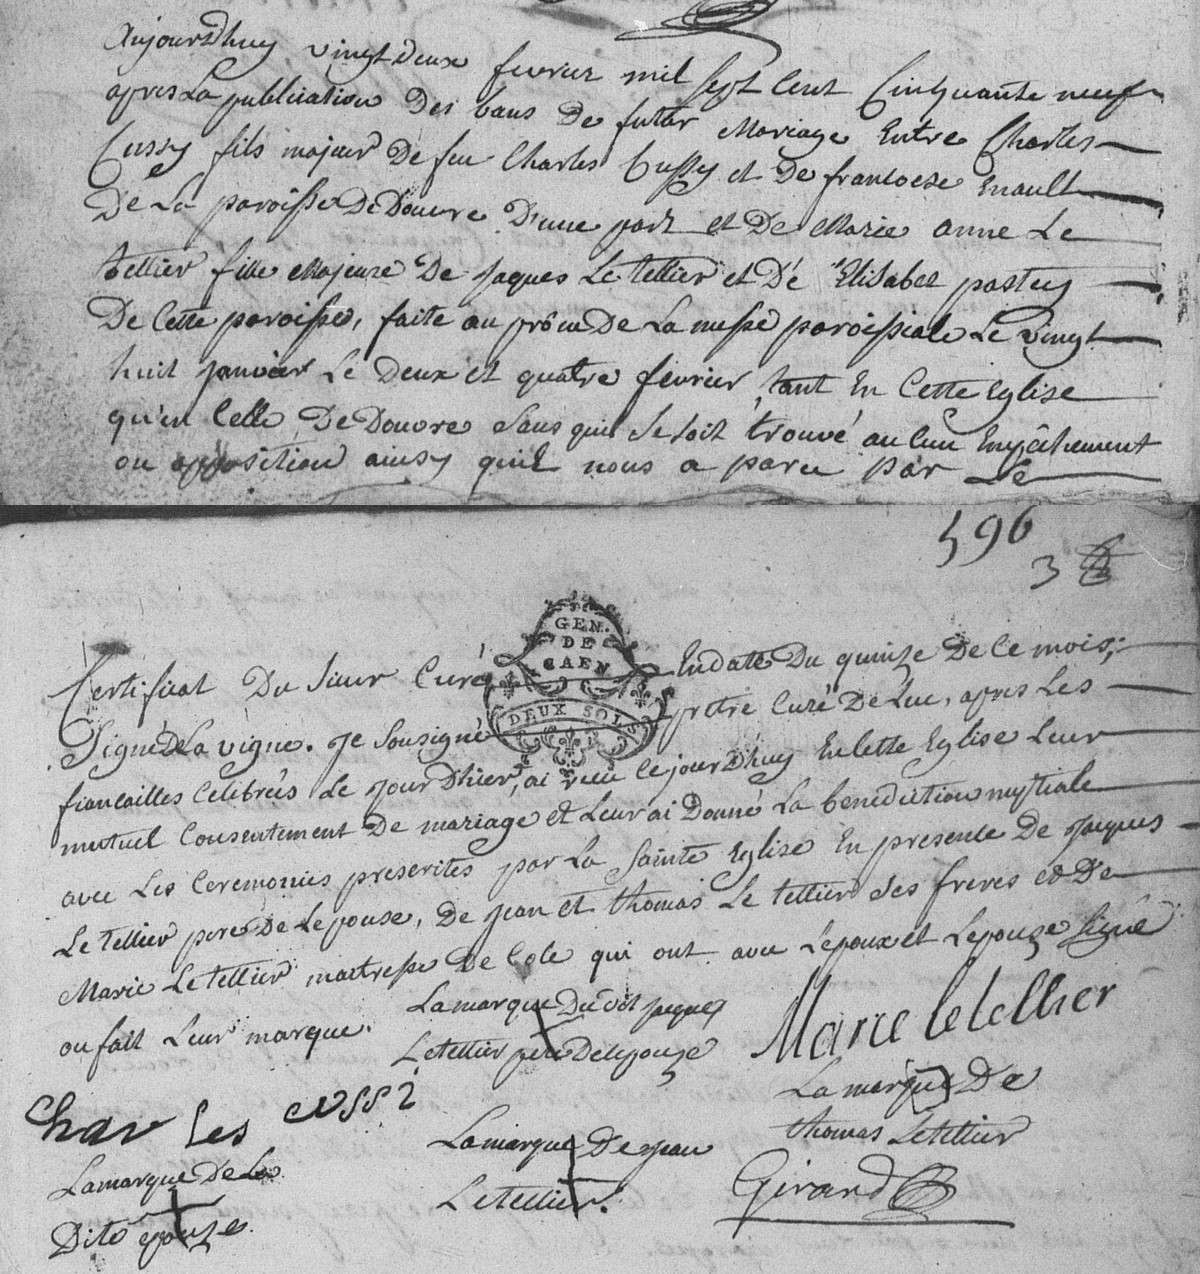 Aujourdhuy vingt deux fevrier mil sept Cent Cinquante neuf
apres La publication Des bans De futur Mariage Entre Charles
Cussy fils majeur De feu Charles Cussy et De francoise Enault
De La paroisse De Douvre D'une part et De Marie anne Le
tellier fille Majeure De Jaques Le tellier et De Elisabet pastey
De Cette paroisse, faite au prône De La messe paroissiale Le vingt
huit Janvier Le Deux et quatre fevrier tant En Cette Eglise
qu'en Celle De Douvre Sans quil Se soit trouvé aucun Empêchement
ou opposition ainsy quil nous a paru par Le
596
3
GEN.
DE
CAEN
DEUX SOLS
Certificat Du Sieur Curé En date Du quinze De Ce mois,
Signé De La vigne. Je Sousigné prêtre Curé De Luc, apres Les
fiancailles Celebrées Le Jour D'hier, ai recu Ce jour D'huy En Cette Eglise Leur
mutuel Consentement De mariage et Leur ai Donné La benediction nuptiale
avec Les Ceremonies prescrites par La Sainte Eglise En presence De Jacques
Le Tellier pere De Lepouse, De Jean et thomas Le tellier Ses freres et De
Marie Le tellier maitresse De Cole qui ont avec L'epoux et Lepouse Signé
ou fait Leur marque.
La marque Du dit Jaques
Le tellier pere De lepouse
Marie le tellier
Charles cussi
La marque De
thomas Le tellier
La marque De Jean
Le tellier.
La marque De La
Dite epouse
Girard